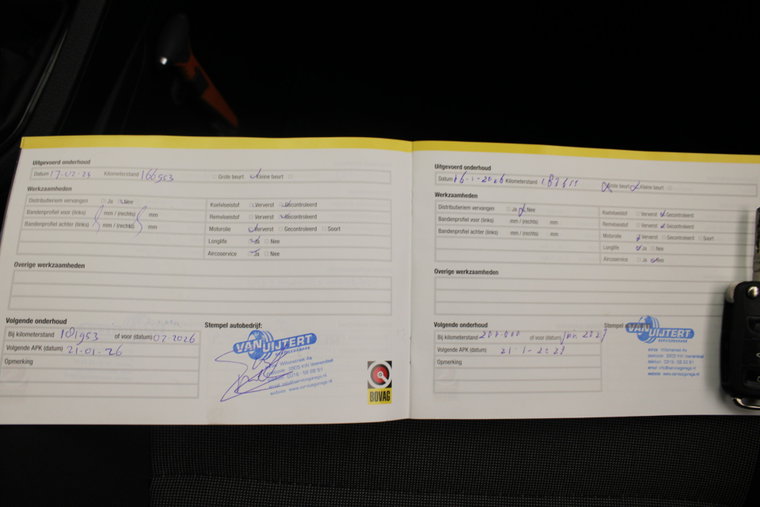 Uitgevoerd onderhoud
Datum 17.02.25 Kilometerstand 166953 Grote beurt Kleine beurt
Werkzaamheden
Distributieriem vervangen Ja Nee
Bandenprofiel voor (links) mm / (rechts) mm
Bandenprofiel achter (links) mm / (rechts) mm
Koelvloeistof Ververst Gecontroleerd
Remvloeistof Ververst Gecontroleerd
Motorolie Ververst Gecontroleerd Soort
Longlife Ja Nee
Aircoservice Ja Nee
Overige werkzaamheden
Volgende onderhoud
Bij kilometerstand of voor (datum) 02 2026
Volgende APK (datum) 21-01-26
Opmerking
Stempel autobedrijf:
VAN UIJTERT
BOVAG
Uitgevoerd onderhoud
Datum 16-1-2026 Kilometerstand Grote beurt Kleine beurt
Werkzaamheden
Distributieriem vervangen Ja Nee
Bandenprofiel voor (links) mm / (rechts) mm
Bandenprofiel achter (links) mm / (rechts) mm
Koelvloeistof Ververst Gecontroleerd
Remvloeistof Ververst Gecontroleerd
Motorolie Ververst Gecontroleerd Soort
Longlife Ja Nee
Aircoservice Ja Nee
Overige werkzaamheden
Volgende onderhoud
Bij kilometerstand 200.000 of voor (datum) jan. 2027
Volgende APK (datum) 21-1-2027
Opmerking
Stempel
VAN UIJTERT